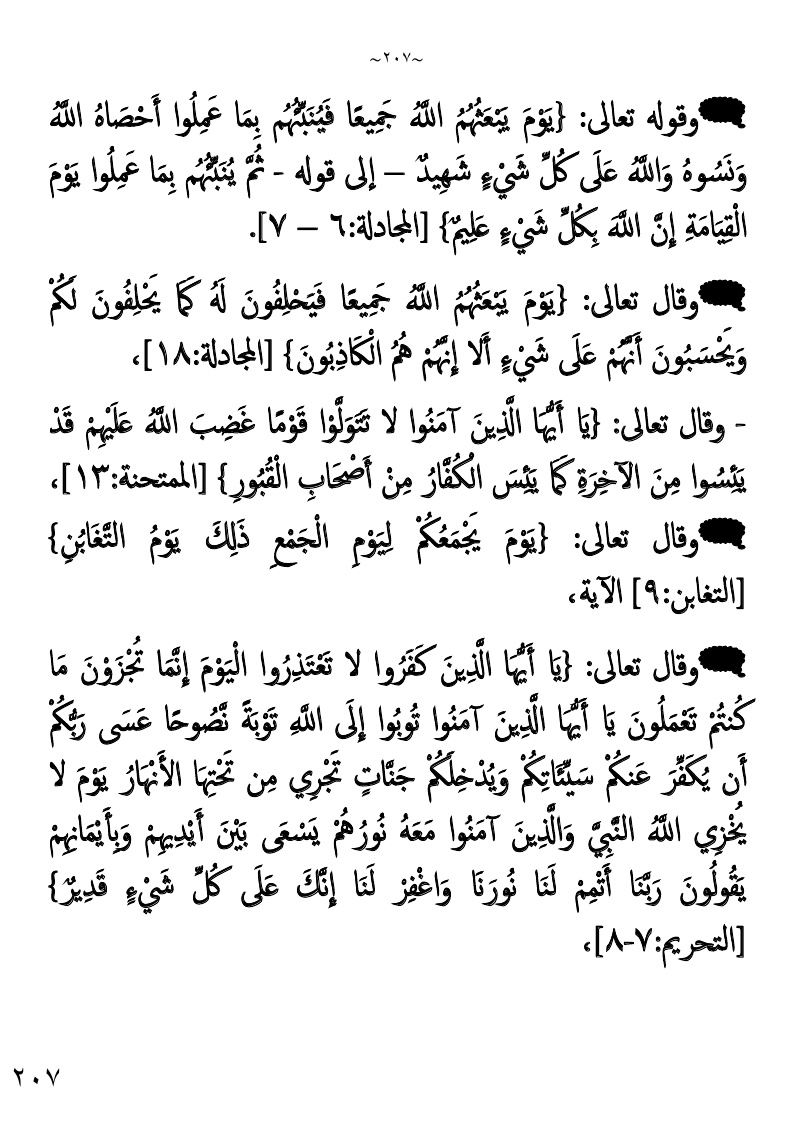 ~٢٠٧~
وقوله تعالى: {يَوْمَ يَبْعَثُهُمُ اللَّهُ جَمِيعًا فَيُنَبِّئُهُم بِمَا عَمِلُوا أَحْصَاهُ اللَّهُ
وَنَسُوهُ وَاللَّهُ عَلَى كُلِّ شَيْءٍ شَهِيدٌ – إلى قوله - ثُمَّ يُنَبِّئُهُم بِمَا عَمِلُوا يَوْمَ
الْقِيَامَةِ إِنَّ اللَّهَ بِكُلِّ شَيْءٍ عَلِيمٌ} [المجادلة:٦ – ٧].
وقال تعالى: {يَوْمَ يَبْعَثُهُمُ اللَّهُ جَمِيعًا فَيَحْلِفُونَ لَهُ كَمَا يَحْلِفُونَ لَكُمْ
وَيَحْسَبُونَ أَنَّهُمْ عَلَى شَيْءٍ أَلا إِنَّهُمْ هُمُ الْكَاذِبُونَ} [المجادلة:١٨]،
- وقال تعالى: {يَا أَيُّهَا الَّذِينَ آمَنُوا لا تَتَوَلَّوْا قَوْمًا غَضِبَ اللَّهُ عَلَيْهِمْ قَدْ
يَئِسُوا مِنَ الآخِرَةِ كَمَا يَئِسَ الْكُفَّارُ مِنْ أَصْحَابِ الْقُبُورِ} [الممتحنة:١٣]،
وقال تعالى: {يَوْمَ يَجْمَعُكُمْ لِيَوْمِ الْجَمْعِ ذَلِكَ يَوْمُ التَّغَابُنِ}
[التغابن:٩] الآية،
وقال تعالى: {يَا أَيُّهَا الَّذِينَ كَفَرُوا لا تَعْتَذِرُوا الْيَوْمَ إِنَّمَا تُجْزَوْنَ مَا
كُنتُمْ تَعْمَلُونَ يَا أَيُّهَا الَّذِينَ آمَنُوا تُوبُوا إِلَى اللَّهِ تَوْبَةً نَّصُوحًا عَسَى رَبُّكُمْ
أَن يُكَفِّرَ عَنكُمْ سَيِّئَاتِكُمْ وَيُدْخِلَكُمْ جَنَّاتٍ تَجْرِي مِن تَحْتِهَا الأَنْهَارُ يَوْمَ لا
يُخْزِي اللَّهُ النَّبِيَّ وَالَّذِينَ آمَنُوا مَعَهُ نُورُهُمْ يَسْعَى بَيْنَ أَيْدِيهِمْ وَبِأَيْمَانِهِمْ
يَقُولُونَ رَبَّنَا أَتْمِمْ لَنَا نُورَنَا وَاغْفِرْ لَنَا إِنَّكَ عَلَى كُلِّ شَيْءٍ قَدِيرٌ}
[التحريم:٧-٨]،
٢٠٧